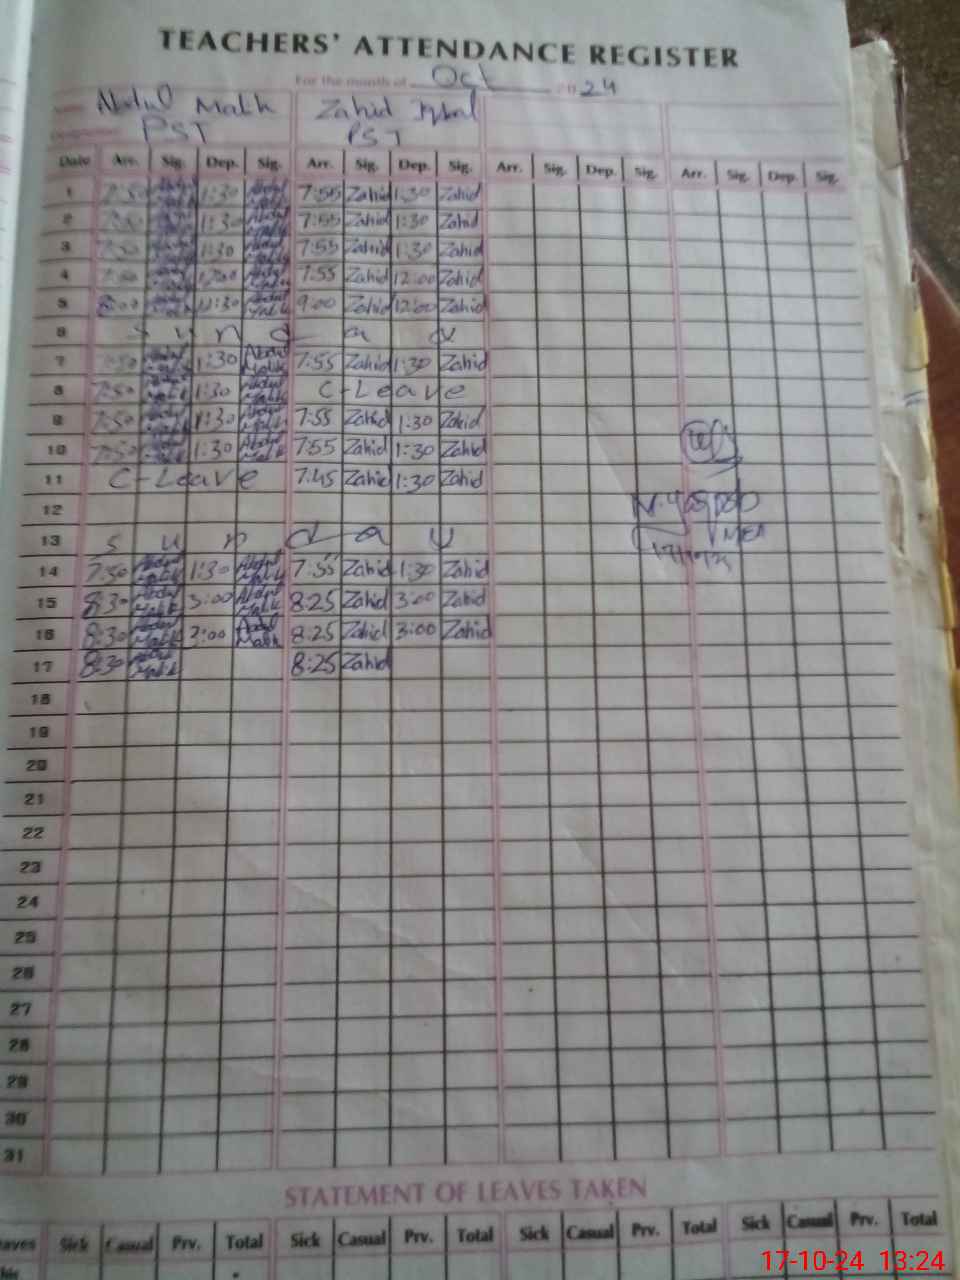 TEACHERS' ATTENDANCE REGISTER
For the month of Oct 2024
Name Abdul Malik Zahid Iqbal
Designation PST PST
Date Arr. Sig. Dep. Sig. Arr. Sig. Dep. Sig. Arr. Sig. Dep. Sig. Arr. Sig. Dep. Sig.
1 7:50 Abdul Malik 1:30 Abdul Malik 7:55 Zahid 1:30 Zahid
2 7:50 Abdul Malik 1:30 Abdul Malik 7:55 Zahid 1:30 Zahid
3 7:50 Abdul Malik 1:30 Abdul Malik 7:55 Zahid 1:30 Zahid
4 7:50 Abdul Malik Abdul Malik 7:55 Zahid 12:00 Zahid
5 8:00 Abdul Malik 11:30 Abdul Malik 9:00 Zahid 12:00 Zahid
6 S u n d a y
7 7:50 Abdul Malik 1:30 Abdul Malik 7:55 Zahid 1:30 Zahid
8 7:50 Abdul Malik 1:30 Abdul Malik C-Leave
9 7:50 Abdul Malik 1:30 Abdul Malik 7:55 Zahid 1:30 Zahid
10 7:50 Abdul Malik 1:30 Abdul Malik 7:55 Zahid 1:30 Zahid
11 C-Leave 7:45 Zahid 1:30 Zahid
12
13 S u n d a y
MEA
14 7:50 Abdul Malik 1:30 Abdul Malik 7:55 Zahid 1:30 Zahid
15 8:30 Abdul Malik 3:00 Abdul Malik 8:25 Zahid 3:00 Zahid
16 8:30 Abdul Malik 3:00 Abdul Malik 8:25 Zahid 3:00 Zahid
17 8:30 Abdul Malik 8:25 Zahid
18
19
20
21
22
23
24
25
26
27
28
29
30
31
STATEMENT OF LEAVES TAKEN
eaves Sick Casual Prv. Total Sick Casual Prv. Total Sick Casual Prv. Total Sick Casual Prv. Total
17-10-24 13:24